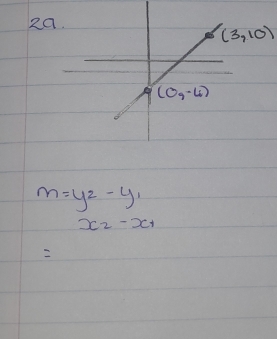 2a.
(3,10)
(0,-4)
m = y2 - y1
x2 - x1
=